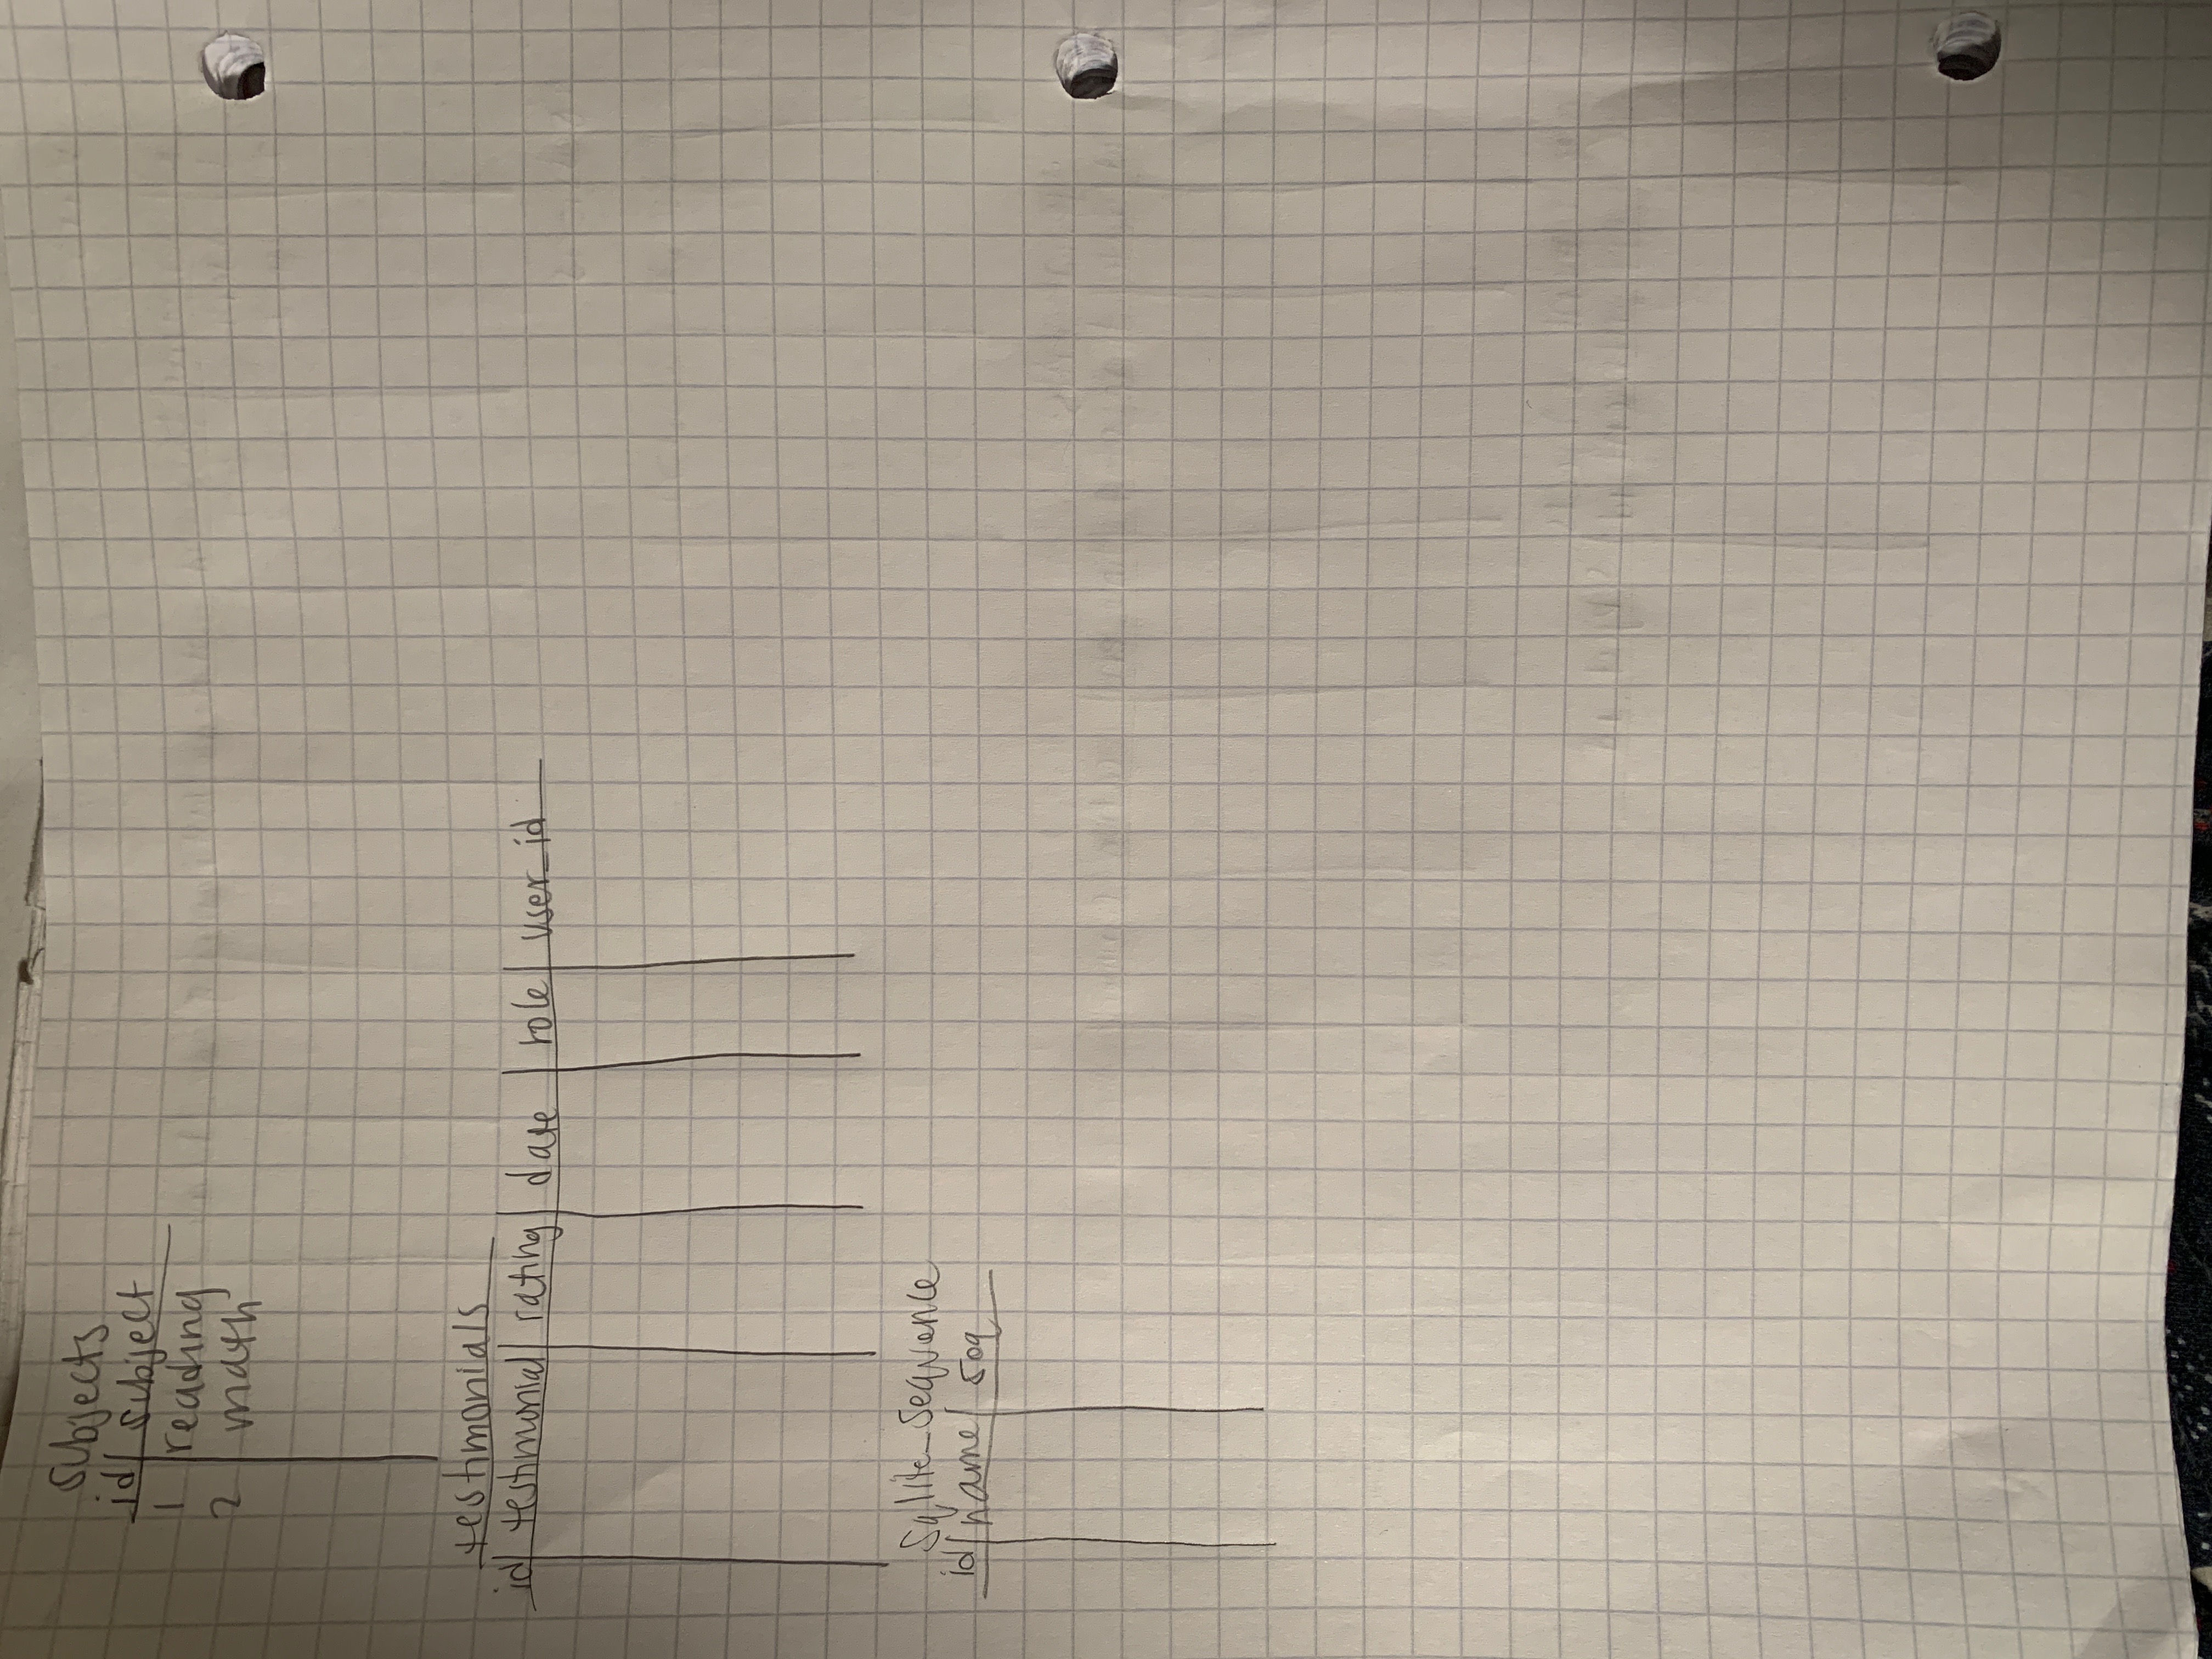 subjects
id subject
1 reading
2 math
testimonials
id testimonial rating date role user_id
sqlite_sequence
id name seq